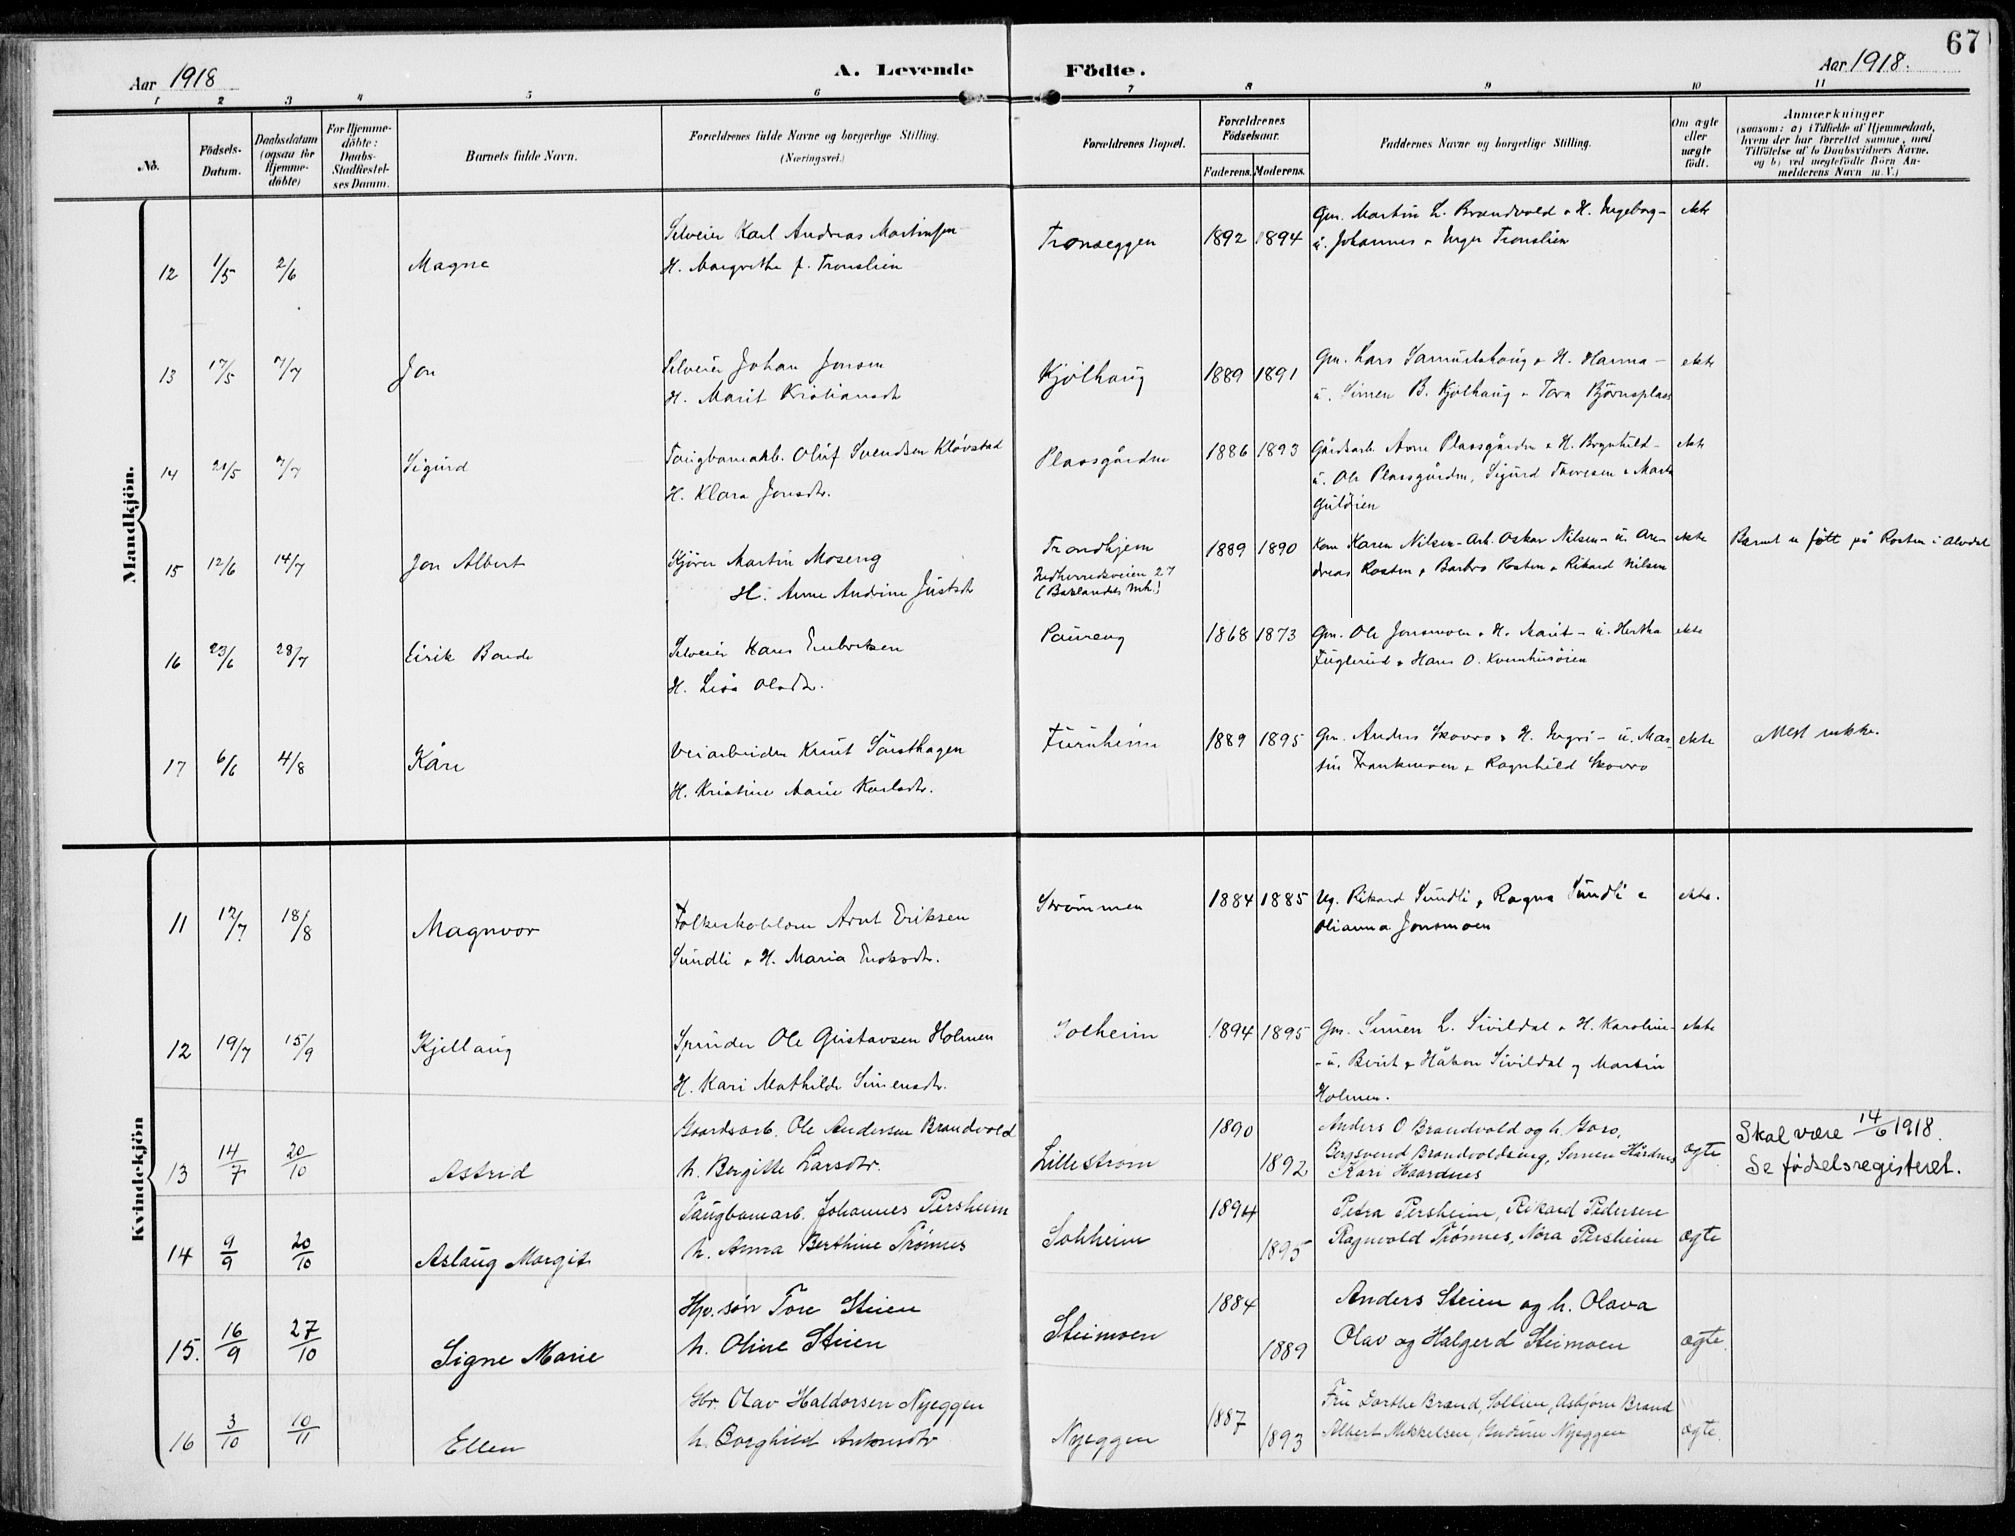 67
Aar 1918
A. Levende
Födte.
Aar 1918.
1 2 3 4 5 6 7 8 9 10 11
No.
Födsels-Datum.
Daabsdatum (ogsaa for Hjemme-döbte)
For Hjemme-döbte: Daabs-Stadfæstel-ses Datum.
Barnets fulde Navn.
Forældrenes fulde Navne og borgerlige Stilling.
(Næringsvei.)
Forældrenes Bopæl.
Forældrenes Födselsaar.
Faderens. Moderens.
Faddernes Navne og borgerlige Stilling.
Om ægte eller uægte födt.
Anmærkninger
(saasom: a) i Tilfælde af Hjemmedaab,
hvem der har forrettet samme, med
Tilföielse af to Daabsvidners Navne.
og b) ved uægtefödte Börn An-
melderens Navn m. V.)
Mandkjön.
12 1/5 2/6 Magne
Selveier Karl Andreas Martinsen
H. Margrethe f. Tronslien
Tronseggen 1892 1894
Gm. Martin L. Brandvold & H. Ingeborg - ekte
u. Johannes & Inger Tronslien
13 17/5 7/7 Jon
Selveier Johan Jonsen
H. Marit Kristiansdt
Kjølhaug 1889 1891
Gm. Lars Samuelshaug & H. Hanna - ekte
u. Simen B. Kjølhaug & Tora Bjørnsplass
14 21/5 7/7 Sigurd
Taugbanearb. Oluf Svendsen Kløvstad
H. Klara Jonsdtr.
Plassgården 1886 1893
Gårdsarb. Arne Plassgården & H. Brynhild - ekte
u. Ole Plassgården, Sigurd Thoresen & Marte
Guldøien
15 12/6 14/7 Jon Albert
Kjører Martin Moseng
H. Anne Andrine Justsdt
Trondhjem
Indherredsveien 27
1889 1890
Kone Karen Nilsen - Arb. Oskar Nilsen - u. An- ekte
dreas Rosten & Barbro Rosten & Rikard Nilsen
Barnet er født på Rosten i Alvdal
16 23/6 28/7 Eirik
Selveier Hans Embretsen
H. Lisa Olsdtr.
Paureng 1868 1873
Gm. Ole Jonsmoen & H. Marit - u. Hertha ekte
Fuglerud & Hans O. Kvernhusøien
17 6/6 4/8 Kåre
Veiarbeider Knut Sørsthagen
H. Kristine Marie Karlsdtr.
Furuheim 1889 1895
Gm. Anders Skovro & H. Ingri - u. Mar- ekte
tin Frankmoen & Ragnhild Skovro
Kvindekjön
11 12/7 18/8 Magnvor
Folkeskolelærer Arnt Eriksen
Sundli & H. Maria Enoksdtr.
Strømmen 1884 1885
Ug. Rikard Sundli, Ragna Sundli & ekte.
Olianna Jonsmoen
12 19/7 15/9 Kjellaug
Ole Gustavsen Holmen
H. Kari Mathilde Simensdtr.
Solheim 1894 1895
Gm. Simen L. Sivildal & H. Karoline - ekte
- u. Berit & Håkon Sivildal og Martin
Holmen.
13 14/7 20/10 Astrid
Gaardsarb. Ole Andersen Brandvold
h. Bergitte Larsdtr.
Lillestrøm 1890 1892
Anders O Brandvold og h. Goro,
Bergsvend Brandvoldeing, Simen Hårdnes ægte
Kari Haardnes
Skal være 14/6 1918.
Se fødselsregisteret.
14 9/9 20/10 Aslaug Margit
Taugbanearb. Johannes Persheim
h. Anna Berthine Trønnes
Solheim 1894 1895
Petra Persheim, Rikard Pedersen
Ragnvald Trønnes, Nora Persheim ægte
15. 16/9 27/10 Signe Marie
Hpv. søn Tore Steien
h. Oline Steien
Steimoen 1884 1889
Anders Steien og h. Olava
Olav og Halgerd Steimoen ægte.
16 3/10 10/11 Ellen
Gbr. Olav Haldorsen Nyeggen
h. Borghild Antonsdtr
Nyeggen 1887 1893
Fru Dorthe Brand, Sollien, Asbjørn Brand
Albert Mikkelsen, Gudrun Nyeggen ægte.